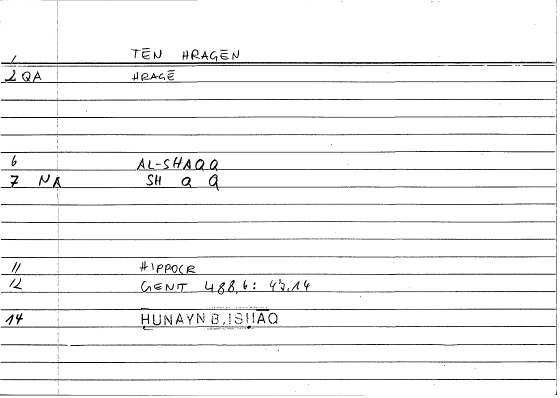 1 TĒN HRAGĒN
2 QA HRAGĒ
6 AL-SHAQQ
7 NA SH Q Q
11 HIPPOCR
12 GENT 488,6: 47,14
14 HUNAYN B. ISHĀQ